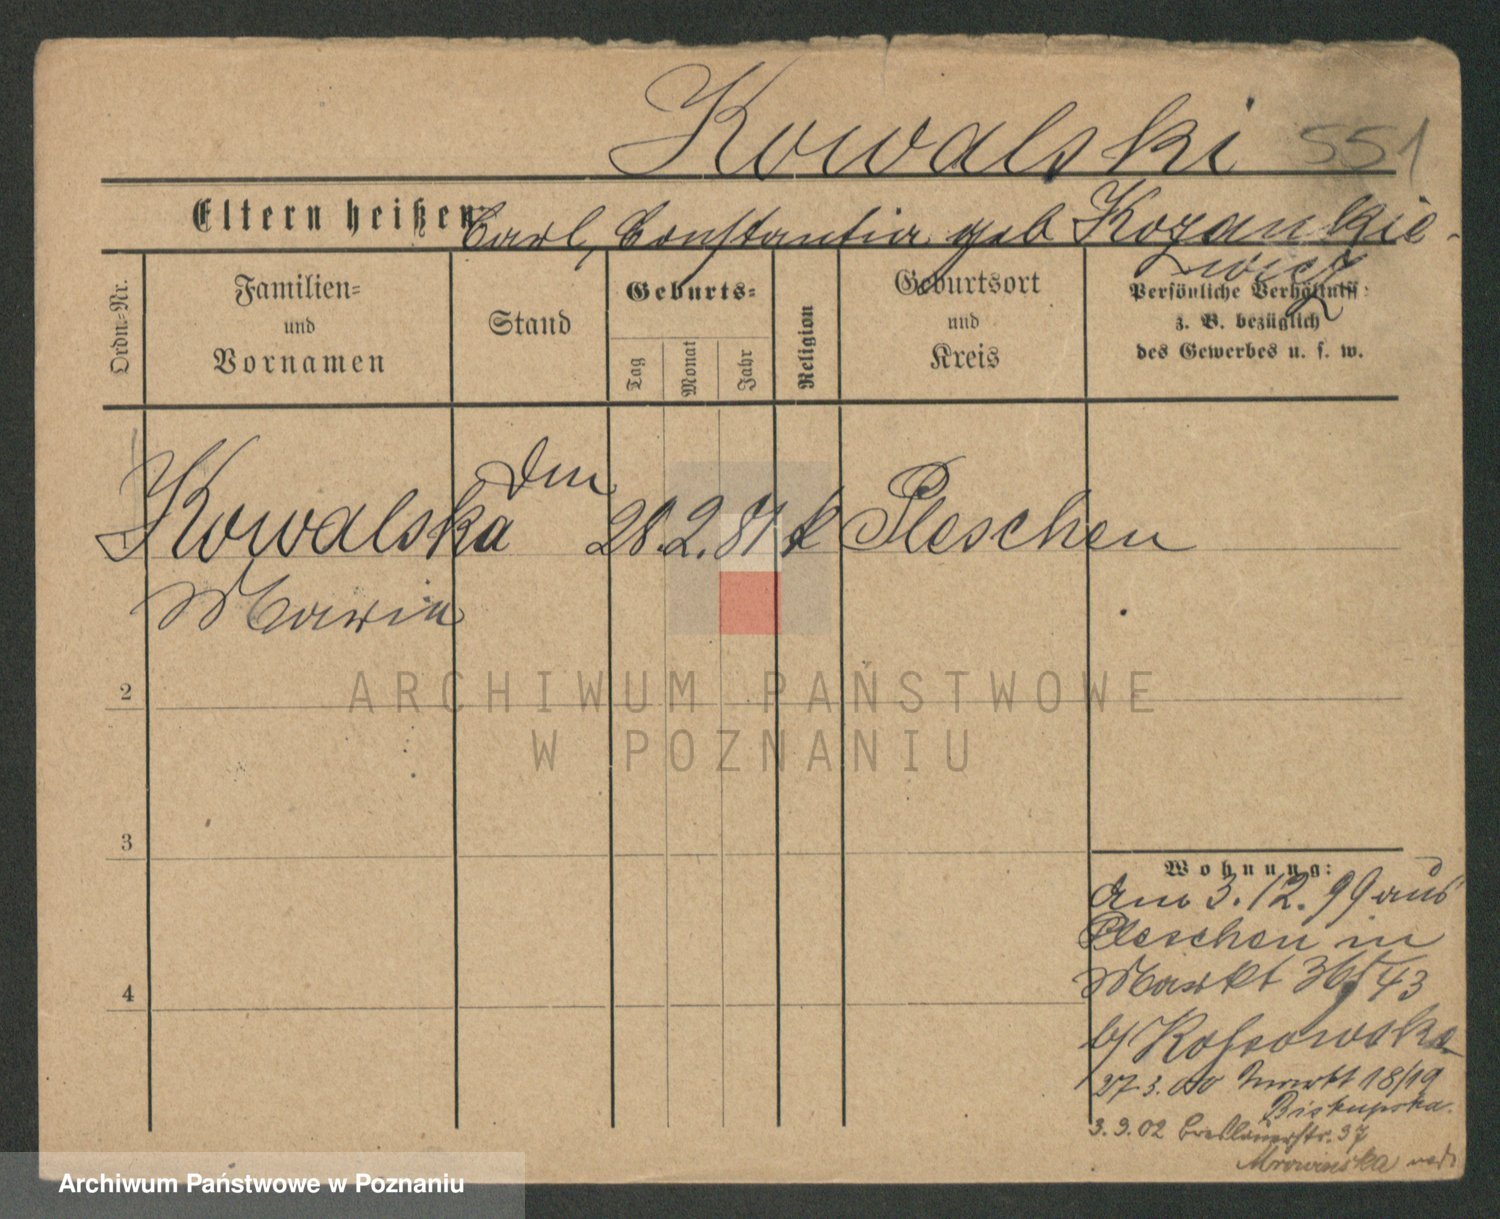 Kowalski 551
Eltern heißen: Carl, Constantia geb Kozankie-
wicz
Ordn.-Nr.
Familien-
und
Vornamen
Stand
Geburts-
Tag
Monat
Jahr
Religion
Geburtsort
und
Kreis
Persönliche Verhältniss:
z. B. bezüglich
des Gewerbes u. s. w.
Kowalska
Maria
28. 2. 81 k Pleschen
2
3
4
Wohnung:
am 3.12.99 aus
Pleschen in
Markt 43
b/
27 3. 00 Markt 18/19
Biskupska.
3. 9. 02 Breslauerstr. 37
ARCHIWUM PAŃSTWOWE
W POZNANIU
Archiwum Państwowe w Poznaniu